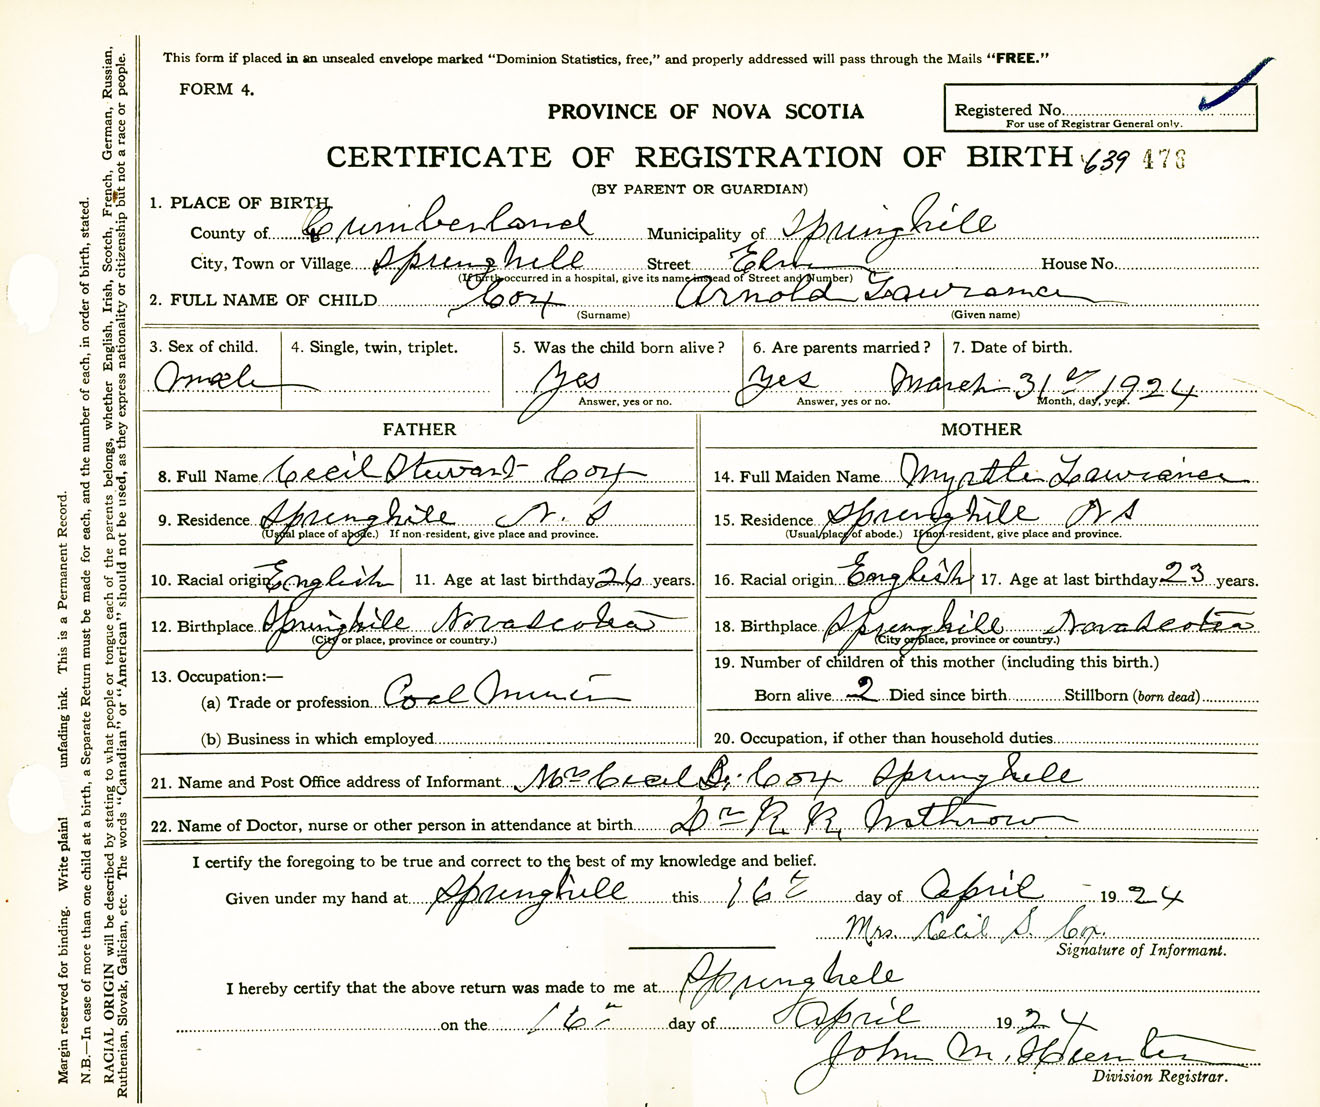 This form if placed in an unsealed envelope marked "Dominion Statistics, free," and properly addressed will pass through the Mails "FREE."
FORM 4.
Registered No.
For use of Registrar General only.
PROVINCE OF NOVA SCOTIA
CERTIFICATE OF REGISTRATION OF BIRTH 639 478
(BY PARENT OR GUARDIAN)
1. PLACE OF BIRTH
County of Cumberland Municipality of Springhill
City, Town or Village Springhill Street Elm House No.
(If birth occurred in a hospital, give its name instead of Street and Number)
2. FULL NAME OF CHILD Cox Arnold Lawrance
(Surname) (Given name)
3. Sex of child. 4. Single, twin, triplet. 5. Was the child born alive? 6. Are parents married? 7. Date of birth.
male Yes Yes March 31 1924
Answer, yes or no. Answer, yes or no. Month, day, year.
FATHER MOTHER
8. Full Name Cecil Stewart Cox 14. Full Maiden Name Myrtle Lawrance
9. Residence Springhill N. S 15. Residence Springhill N S
(Usual place of abode.) If non-resident, give place and province. (Usual place of abode.) If non-resident, give place and province.
10. Racial origin English 11. Age at last birthday 26 years. 16. Racial origin English 17. Age at last birthday 23 years.
12. Birthplace Springhill Novascotia 18. Birthplace Springhill Novascotia
(City or place, province or country.) (City or place, province or country.)
13. Occupation:— 19. Number of children of this mother (including this birth.)
(a) Trade or profession Coal Miner Born alive 2 Died since birth Stillborn (born dead)
(b) Business in which employed 20. Occupation, if other than household duties
21. Name and Post Office address of Informant Mrs Cecil S. Cox Springhill
22. Name of Doctor, nurse or other person in attendance at birth Dr R. R. Withrow
I certify the foregoing to be true and correct to the best of my knowledge and belief.
Given under my hand at Springhill this 16th day of April 1924
Mrs. Cecil S. Cox.
Signature of Informant.
I hereby certify that the above return was made to me at Springhill
on the 16th day of April 1924
John M. Hunter
Division Registrar.
Margin reserved for binding. Write plainl unfading ink. This is a Permanent Record.
N.B.—In case of more than one child at a birth, a Separate Return must be made for each, and the number of each, in order of birth, stated.
RACIAL ORIGIN will be described by stating to what people or tongue each of the parents belongs, whether English, Irish, Scotch, French, German, Russian,
Ruthenian, Slovak, Galician, etc. The words "Canadian" or "American" should not be used, as they express nationality or citizenship but not a race or people.